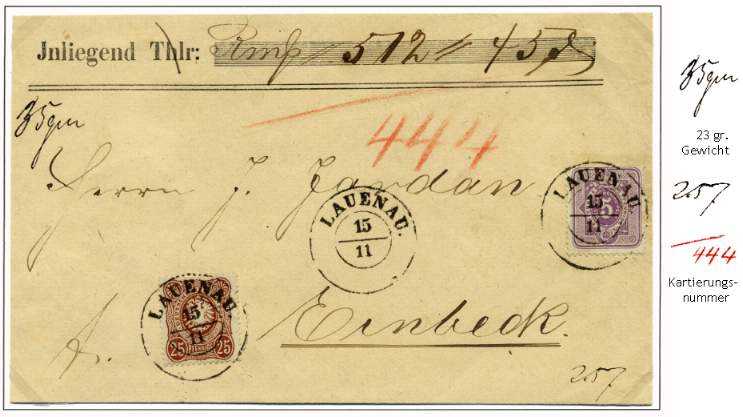 Jnliegend Thlr: Rmk 512 " 45 ₰
35gm
444
Herrn J. Jardan
LAUENAU.
15
11
LAUENAU.
15
11
5
LAUENAU.
15
11
25 25
Einbeck.
257
35gm
23 gr.
Gewicht
257
444
Kartierungs-
nummer